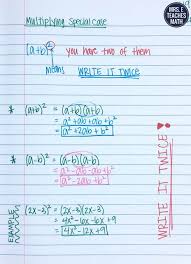 MRS. E TEACHES MATH
Multiplying Special Case
(a+b)² you have two of them
Means WRITE IT TWICE
* (a+b)² = (a+b)(a+b)
= a²+ab+ab+b²
= a²+2ab+b²
* (a-b)² = (a-b)(a-b)
= a²-ab-ab+b²
= a²-2ab+b²
EXAMPLE
(2x-3)² = (2x-3)(2x-3)
= 4x²-6x-6x+9
= 4x²-12x+9
WRITE IT TWICE!